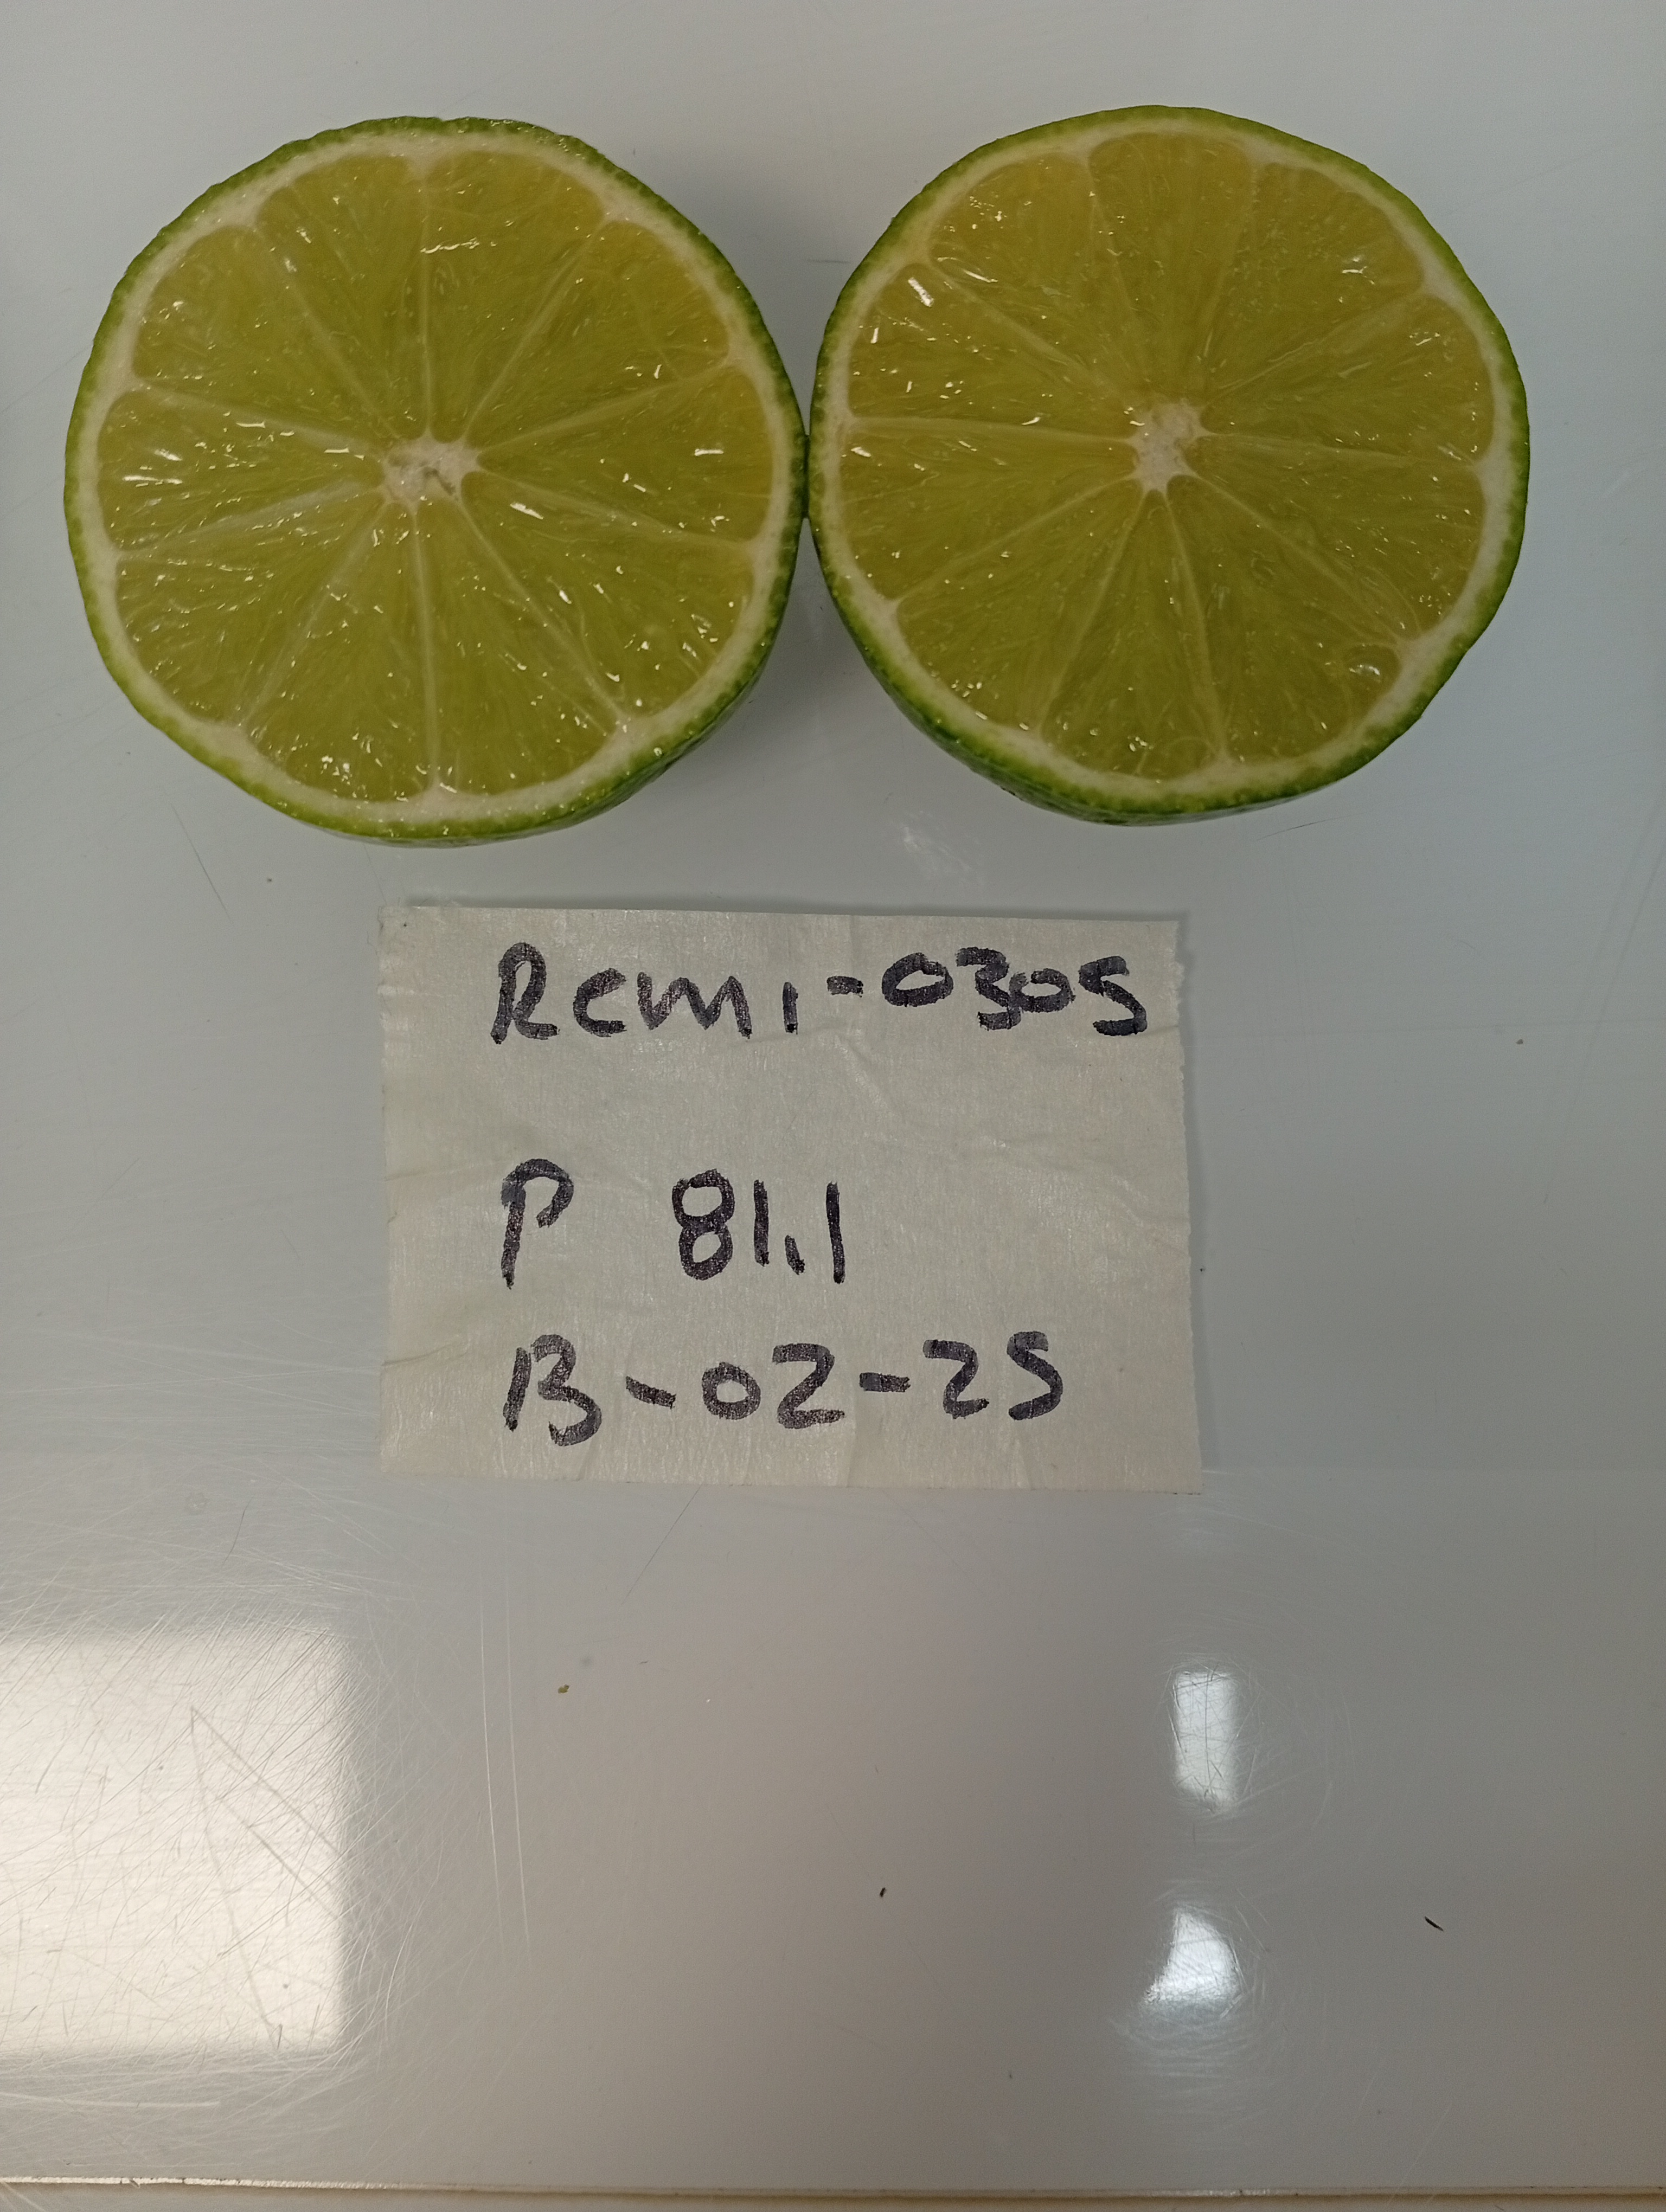 Remi-0305
P 81.1
13-02-25